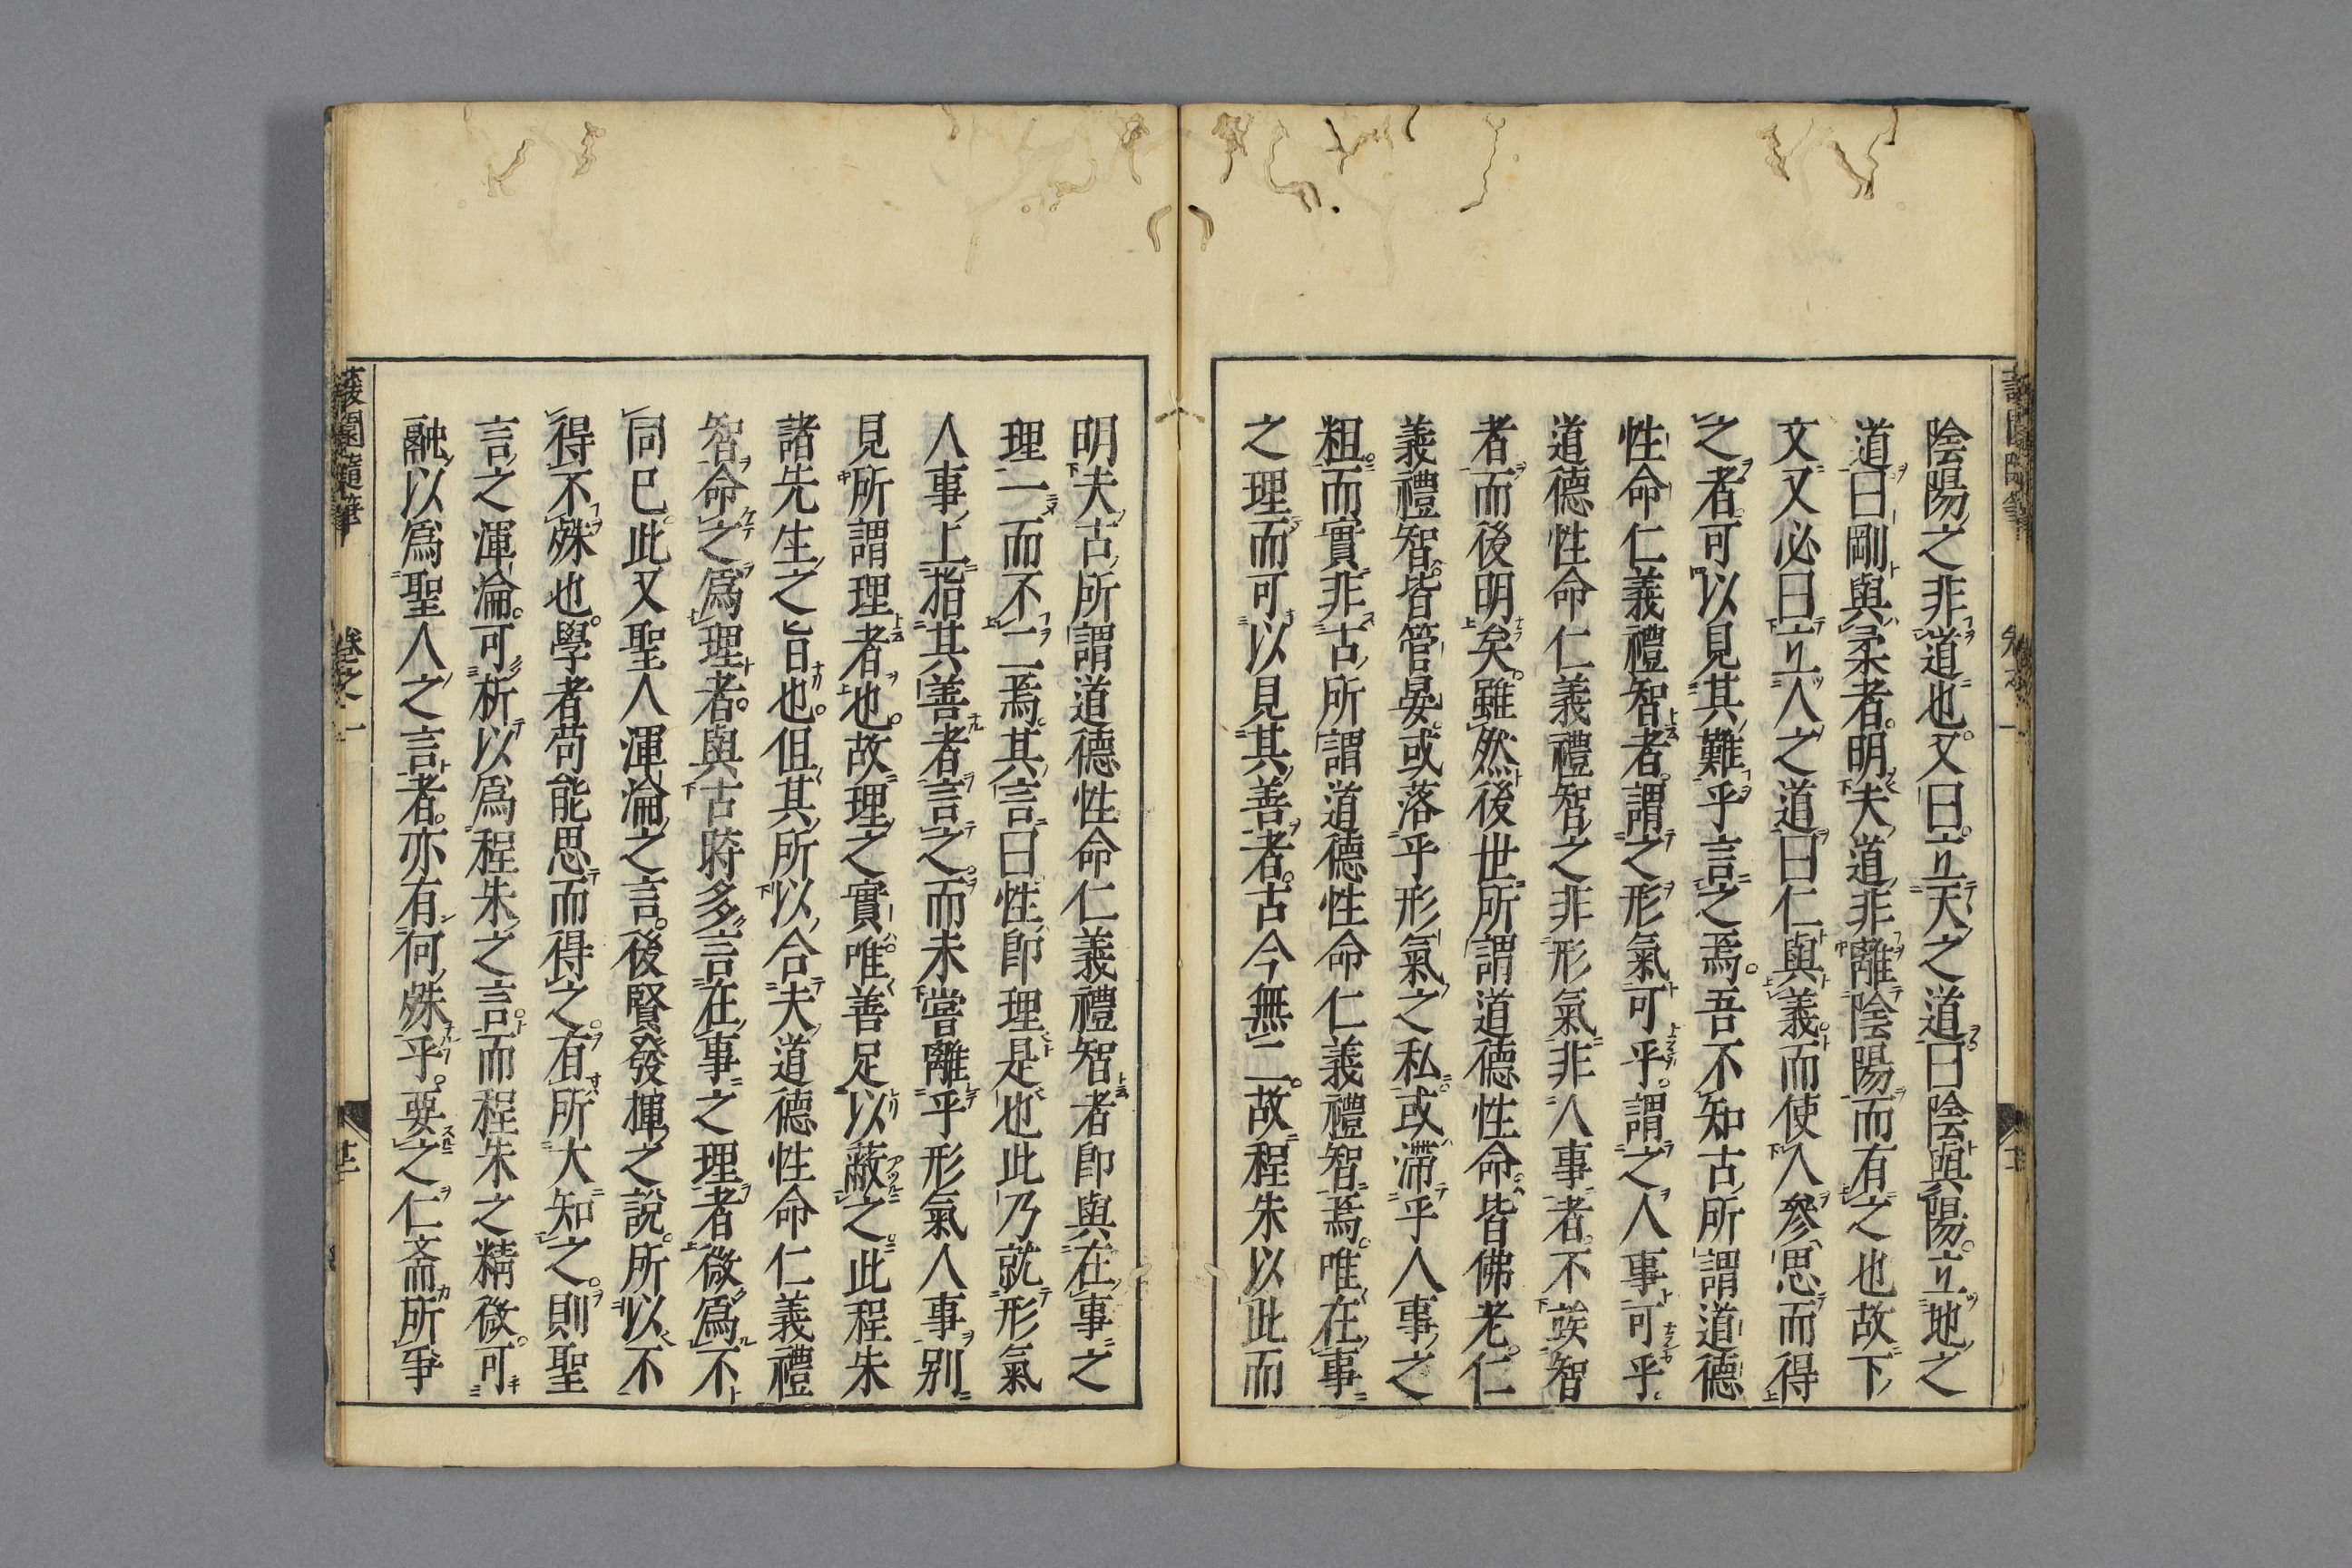 陰陽之非道也又曰立天之道曰陰與陽立地之
道曰剛與柔者明夫道非離陰陽而有之也故下
文又必曰立人之道曰仁與義而使人參思而得
之者可以見其難乎言之焉吾不知古所謂道德
性命仁義禮智者謂之形氣可乎謂之人事可乎
道德性命仁義禮智之非形氣非人事者不竢智
者而後明矣雖然後世所謂道德性命皆佛老仁
義禮智皆管晏或落乎形氣之私或滯乎人事之
粗而實非古所謂道德性命仁義禮智焉唯在事
之理而可以見其善者古今無二故程朱以此而
明夫古所謂道德性命仁義禮智者卽與在事之
理一而不二焉其言曰性卽理是也此乃就形氣
人事上指其善者言之而未嘗離乎形氣人事別
見所謂理者也故理之實唯善足以蔽之此程朱
諸先生之旨也但其所以合夫道德性命仁義禮
智命之爲理者與古時多言在事之理者微爲不
同已此又聖人渾淪之言後賢發揮之說所以不
得不殊也學者苟能思而得之有所大知之則聖
言之渾淪可析以爲程朱之言而程朱之精微可
融以爲聖人之言者亦有何殊乎要之仁斎所爭
蘐園隨筆 卷之一